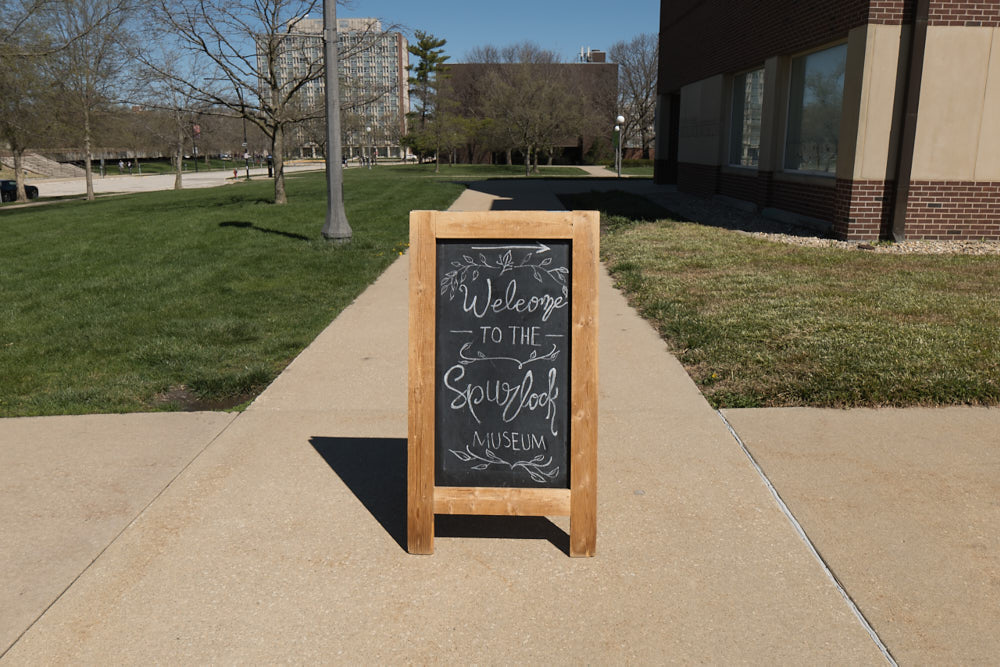 Welcome
TO THE
Spurlock
MUSEUM